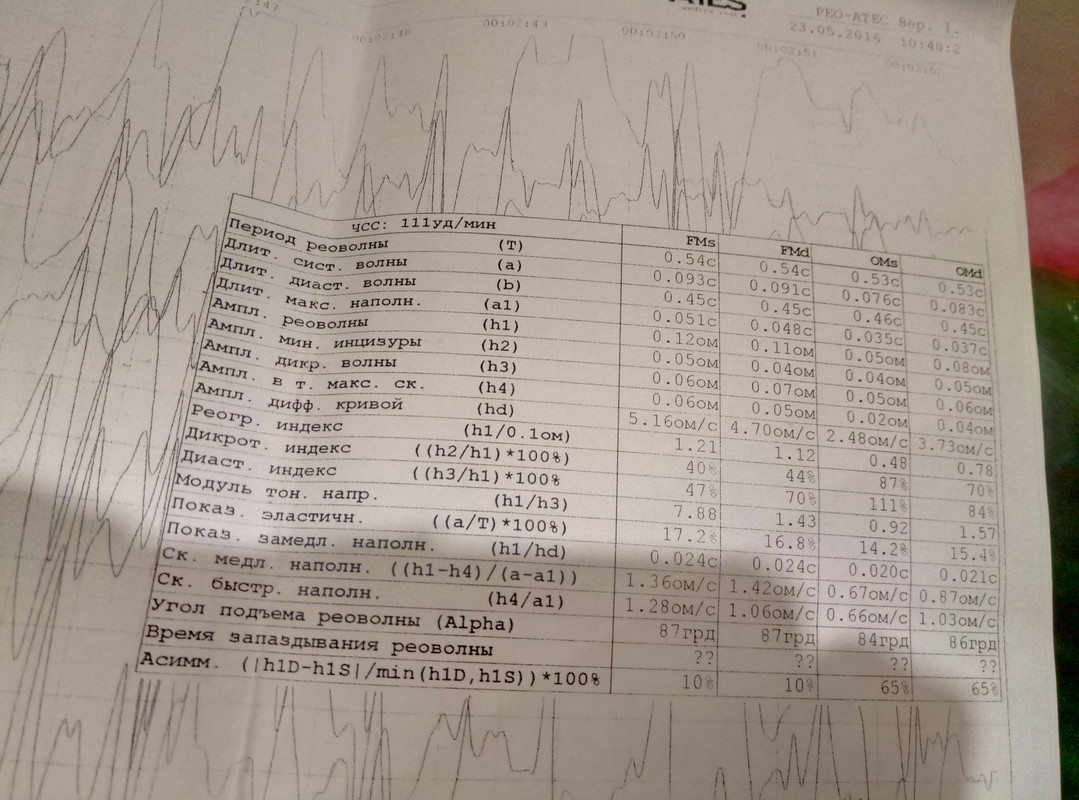 РЕО-АТЕС Вер. 1.
23.05.2016 10:40:2
00:02:49
00:02:50
00:02:51
00:02:52
ЧСС: 111уд/мин FMs FMd OMs OMd
Период реоволны (T) 0.54с 0.54с 0.53с 0.53с
Длит. сист. волны (a) 0.093с 0.091с 0.076с 0.083с
Длит. диаст. волны (b) 0.45с 0.45с 0.46с 0.45с
Длит. макс. наполн. (a1) 0.051с 0.048с 0.035с 0.037с
Ампл. реоволны (h1) 0.12ом 0.11ом 0.05ом 0.08ом
Ампл. мин. инцизуры (h2) 0.05ом 0.04ом 0.04ом 0.05ом
Ампл. дикр. волны (h3) 0.06ом 0.07ом 0.05ом 0.06ом
Ампл. в т. макс. ск. (h4) 0.06ом 0.05ом 0.02ом 0.04ом
Ампл. дифф. кривой (hd) 5.16ом/с 4.70ом/с 2.48ом/с 3.73ом/с
Реогр. индекс (h1/0.1ом) 1.21 1.12 0.48 0.78
Дикрот. индекс ((h2/h1)*100%) 40% 44% 87% 70%
Диаст. индекс ((h3/h1)*100% 47% 70% 111% 84%
Модуль тон. напр. (h1/h3) 7.88 1.43 0.92 1.57
Показ. эластичн. ((a/T)*100%) 17.2% 16.8% 14.2% 15.4%
Показ. замедл. наполн. (h1/hd) 0.024с 0.024с 0.020с 0.021с
Ск. медл. наполн. ((h1-h4)/(a-a1)) 1.36ом/с 1.42ом/с 0.67ом/с 0.87ом/с
Ск. быстр. наполн. (h4/a1) 1.28ом/с 1.06ом/с 0.66ом/с 1.03ом/с
Угол подъема реоволны (Alpha) 87грд 87грд 84грд 86грд
Время запаздывания реоволны ?? ?? ?? ??
Асимм. (|h1D-h1S|/min(h1D,h1S))*100% 10% 10% 65% 65%